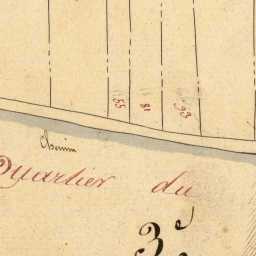 55
81
93
Chemin
Quartier du
3e